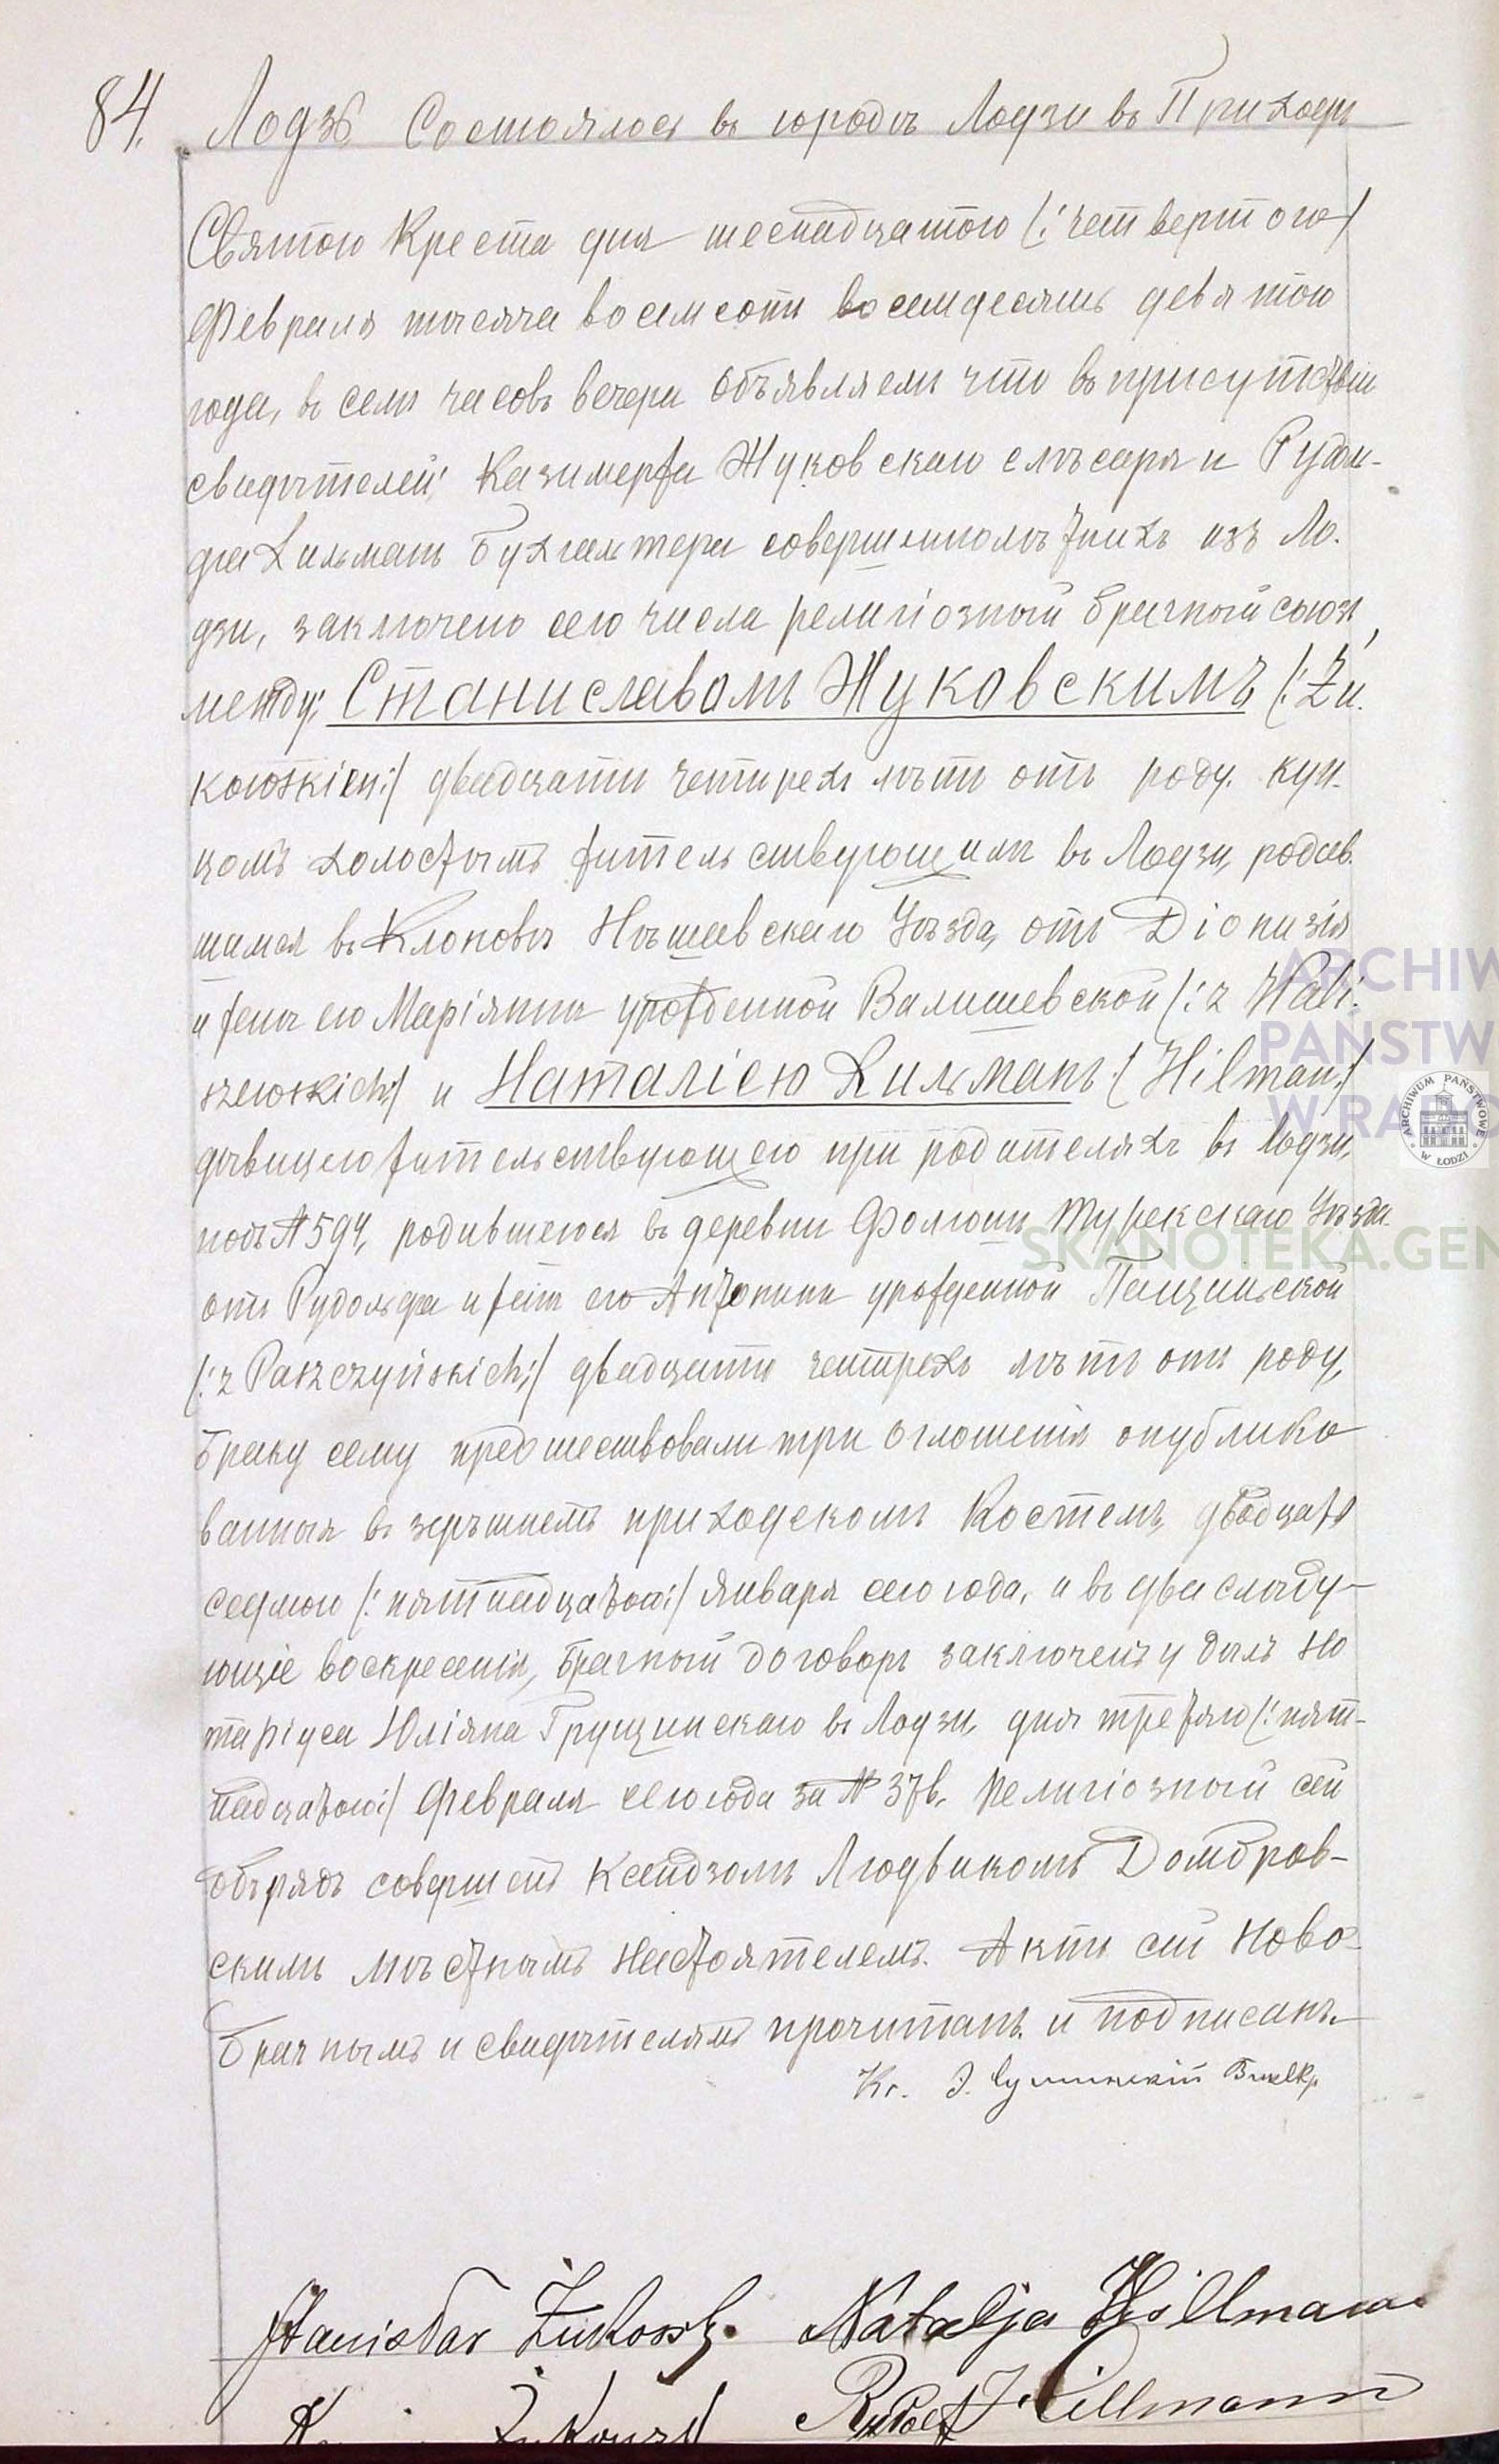 84. Лодзь Состоялось въ городѣ Лодзи въ Приходѣ
Святого Креста дня шеснадцатого (: четвертого)
Февраля тысяча восемсотъ восемдесятъ девятого
года, въ семь часовъ вечера Объявляемъ что въ присутствіи
свидѣтелей: Казимержа Жуковскаго слѣсаря и Рудоль-
фа Хильманъ Бухгалтера совершеннолѣтнихъ изъ Ло-
дзи, заключено сего числа религіозный брачный союзъ,
между: Станиславомъ Жуковскимъ (: Żu-
kowskim:) двадцати четырехъ лѣтъ отъ роду. куп-
цомъ холостымъ жительствующимъ въ Лодзи, родив-
шимся въ Клоновѣ Нѣшавскаго Уѣзда, отъ Діонизія
и жены его Маріянны урожденной Валишевской (: z Wali-
szewskich:) и Наталіею Хильманъ (Hilman:)
дѣвицею жительствующею при родителяхъ въ Лодзи,
подъ № 594, родившеюся въ деревни Фолюши Турекскаго Уѣзда
отъ Рудольфа и жены его Антонины урожденной Пащинской
(: z Paszczyńskich:) двадцати четырехъ лѣтъ отъ роду,
Браку сему предшествовали три оглошенія опублико
ванныя въ здѣшнемъ приходскомъ Костелѣ, двадцать
седмого (: пятнадцатого:) Января сего года, и въ два слѣду-
ющіе воскресенія, Брачный договоръ заключенъ у былъ Но
таріуса Юліяна Грущинскаго въ Лодзи, дня третяго (: пят-
надцатого:) Февраля сего года за № 376. Религіозный сей
обрядъ совершенъ Ксендзомъ Людвикомъ Домбров-
скимъ мѣстнымъ Настоятелемъ. Актъ сей Ново-
брачнымъ и свидѣтелямъ прочитанъ и подписанъ.
Кс.
Stanisław Żukowski. Natalja Hillmann
Żukowski Rudolf Hillmann
ARCHIW
PAŃSTW
W RA
ARCHIWUM PAŃSTWOWE W ŁODZI
SKANOTEKA.GEN